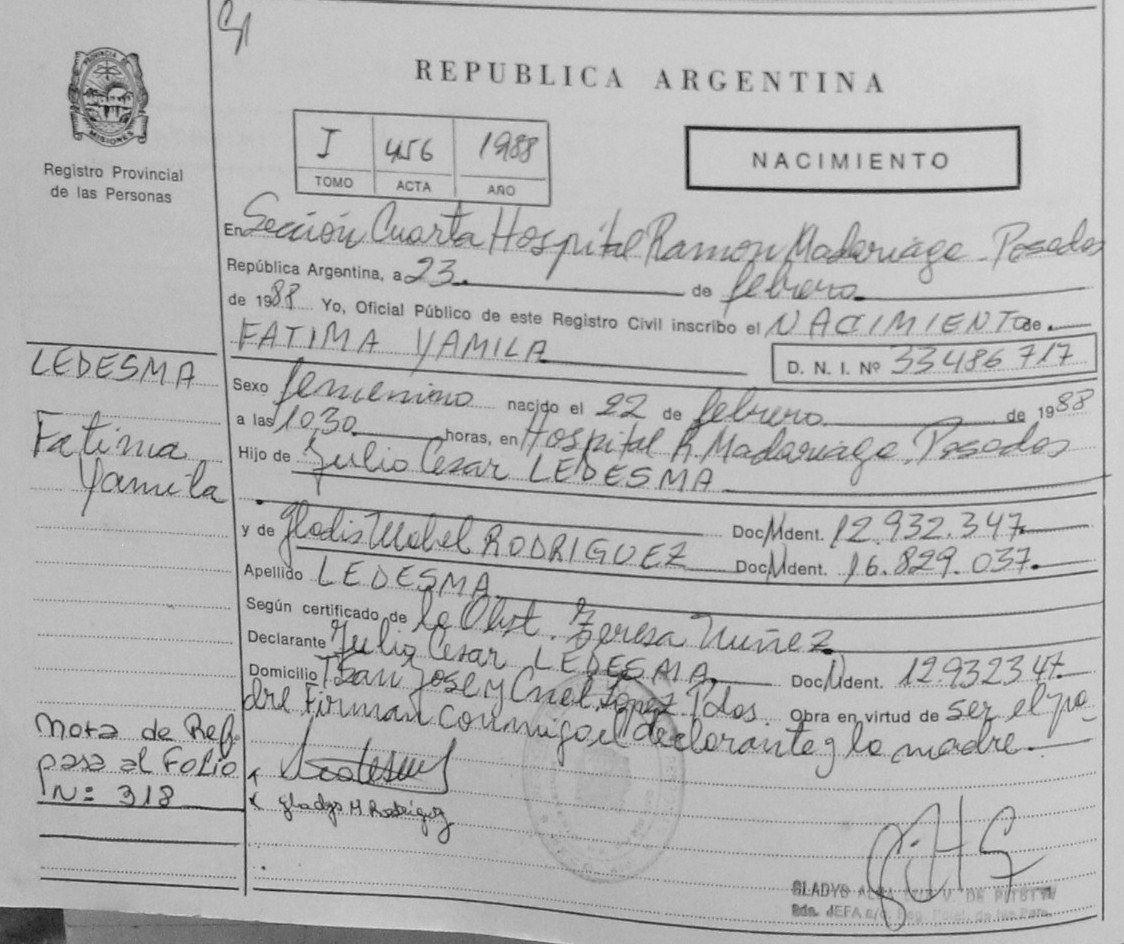 REPUBLICA ARGENTINA
PROVINCIA DE
MISIONES
Registro Provincial
de las Personas
I 456 1988
TOMO ACTA AÑO
NACIMIENTO
En Sección Cuarta Hospital Ramon Madariaga - Posadas
República Argentina, a 23 de febrero
de 1988 Yo, Oficial Público de este Registro Civil inscribo el NACIMIENTO de
FATIMA YAMILA
D. N. I. Nº 33486717
LEDESMA
Fatima
Yamila
Sexo femenino nacido el 22 de febrero de 1988
a las 10,30 horas, en Hospital R. Madariaga, Posadas
Hijo de Julio Cesar LEDESMA
Doc. Ident. 12.932.347
y de Gladis Mabel RODRIGUEZ Doc. Ident. 16.829.037
Apellido LEDESMA
Según certificado de la Obst. Teresa Nuñez
Declarante Julio Cesar LEDESMA Doc. Ident. 12932347
Domicilio San Jose y Cnel Lopez Pdas. Obra en virtud de ser el pa-
dre Firman conmigo el declarante y la madre
Nota de Ref.
pasa al Folio
Nº 318
Gladys M Rodriguez
GLADYS
JEFA